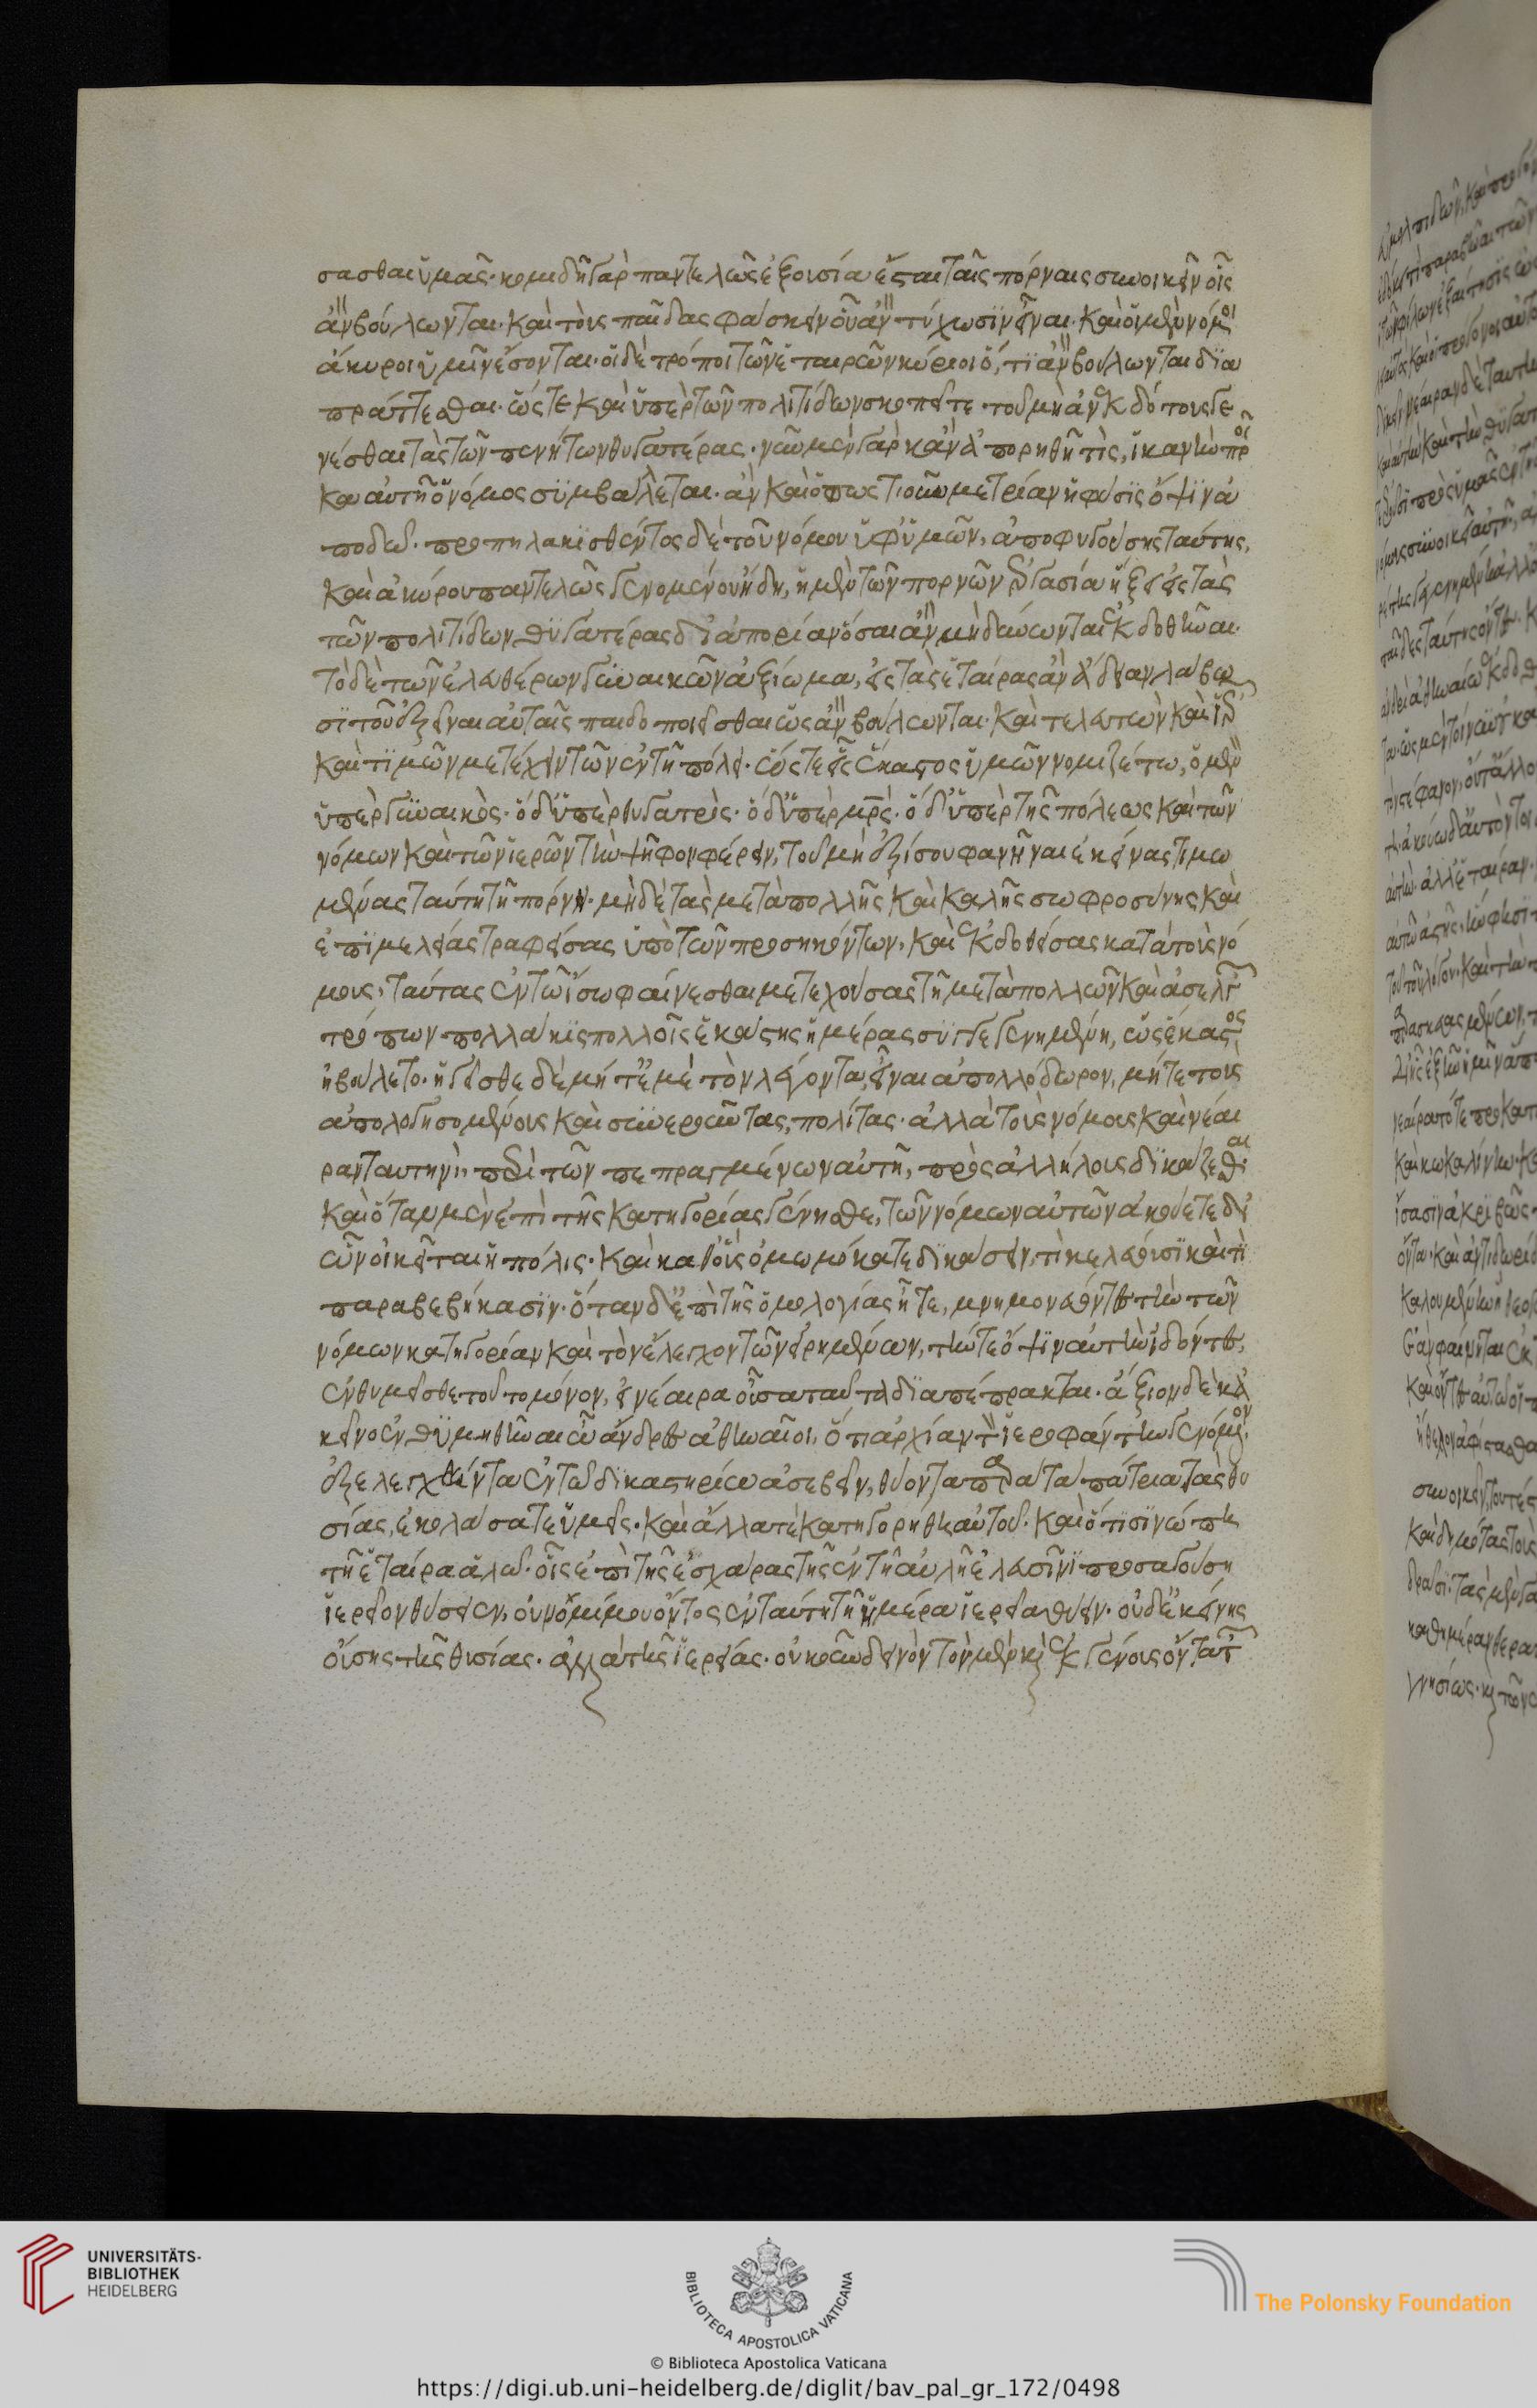 σασθαι ὑμᾶς· κομιδῇ γὰρ παντελῶς ἐξουσία ἔσται ταῖς πόρναις συνοικεῖν οἷς
ἂν βούλωνται· καὶ τοὺς παῖδας φάσκειν οὗ ἂν τύχωσϊν εἶναι· καὶ οἱ μὲν νόμοι
ἄκυροι ὑμῖν ἔσονται· οἱ δὲ τρόποι τῶν ἑταιρῶν κύριοι ὅ, τι ἂν βούλωνται δϊα
πράττεσθαι· ὥστε καὶ ὑπὲρ τῶν πολιτίδων σκοπεῖτε· τοῦ μὴ ἀνεκδότους γε
νέσθαι τὰς τῶν πενήτων θυγατέρας· νῦν μὲν γὰρ κἂν ἀπορηθῇ τὶς, ἱκανὴν προῖ
κα αὐτῇ ὁ νόμος συμβάλλεται· ἂν καὶ ὁπωστιοῦν μετρίαν ἡ φύσϊς ὄψϊν ἀ
ποδῶ· προπηλακϊσθέντος δὲ τοῦ νόμου ὑφ' ὑμῶν, ἀποφυγούσης ταύτης,
καὶ ἀκύρου παντελῶς γενομένου ἤδη, ἡ μὲν τῶν πορνῶν ἐργασία ἥξει εἰς τὰς
τῶν πολιτίδων θυγατέρας δι' ἀπορίαν ὅσαι ἂν μὴ δύνωνται ἐκδοθῆναι·
τὸ δὲ τῶν ἐλευθέρων γυναικῶν ἀξίωμα, εἰς τὰς ἑταίρας ἂν ἄδειαν λάβω
σϊ τοῦ ἐξεῖναι αὐταῖς παιδοποιεῖσθαι ὡς ἂν βούλωνται· καὶ τελετῶν καὶ ἱερῶν
καὶ τϊμῶν μετέχειν τῶν ἐν τῇ πόλει· ὥστε εἷς ἕκαστος ὑμῶν νομιζέτω, ὁ μὲν
ὑπὲρ γυναικὸς· ὁ δ' ὑπὲρ θυγατρὸς· ὁ δ' ὑπὲρ μρς· ὁ δ' ὑπὲρ τῆς πόλεως καὶ τῶν
νόμων καὶ τῶν ἱερῶν τὴν ψῆφον φέρειν, τοῦ μὴ ἐξίσου φανῆναι ἐκείνας τιμω
μένας ταύτῃ τῇ πόρνῃ· μηδὲ τὰς μετὰ πολλῆς καὶ καλῆς σωφροσύνης καὶ
ἐπϊμελείας τραφείσας ὑπὸ τῶν προσηκόντων, καὶ ἐκδοθείσας κατὰ τοὺς νό
μους, ταύτας ἐν τῷ ἴσῳ φαίνεσθαι μετεχούσας τῇ μετὰ πολλῶν καὶ ἀσελγῶν
τρόπων πολλάκϊς πολλοῖς ἑκάστης ἡμέρας συγγεγενημένῃ, ὡς ἕκαστος
ἠβούλετο· ἡγεῖσθε δὲ μήτ' ἐμὲ τὸν λέγοντα, εἶναι ἀπολλόδωρον, μήτε τοὺς
ἀπολογησομένους καὶ συνεροῦντας, πολίτας· ἀλλὰ τοὺς νόμους καὶ νέαι
ραν ταυτηνὶ, περὶ τῶν πεπραγμένων αὐτῇ, πρὸς ἀλλήλους δϊκάζεσθαι·
καὶ ὅταν μὲν ἐπὶ τῆς κατηγορίας γένησθε, τῶν νόμων αὐτῶν ἀκούετε δι'
ὧν οἰκεῖται ἡ πόλις· καὶ καθ' οὓς ὀμωμόκατε δϊκάσειν, τὶ κελεύουσϊ καὶ τὶ
παραβεβήκασϊν· ὅταν δ' ἐπὶ τῆς ὁμολογίας ἦτε, μνημονεύοντες τὴν τῶν
νόμων κατηγορίαν καὶ τὸν ἔλεγχον τῶν εἰρημένων, τήν τε ὄψϊν αὐτῆς ἰδόντες,
ἐνθυμεῖσθε τοῦτο μόνον, εἰ νέαιρα οὖσα ταῦτα δϊαπέπρακται· ἄξιον δὲ κἀ
κεῖνο ἐνθυμηθῆναι ὦ ἄνδρες ἀθηναῖοι, ὅτι ἀρχίαν τὸν ἱεροφάντην γενόμενον,
ἐξελεγχθέντα ἐν τῷ δϊκαστηρίῳ ἀσεβεῖν, θύοντα παρὰ τὰ πάτρια τὰς θυ
σίας, ἐκολάσατε ὑμεῖς· καὶ ἄλλα τὲ κατηγορήθη αὐτοῦ· καὶ ὅτι σϊνώπη
τῇ ἑταίρα ἁλῴοις ἐπὶ τῆς ἐσχάρας τῆς ἐν τῇ αὐλῇ ἐλευσῖνϊ προσαγούσῃ
ἱερεῖον θύσειεν, οὐ νομίμου ὄντος ἐν ταύτῃ τῇ ἡμέρα ἱερεῖα θύειν· οὐδ' ἐκείνης
οὔσης τῆς θυσίας· ἀλλὰ τῆς ἱερείας· οὐκοῦν δεινὸν τὸν μὲν καὶ ἐκ γένους ὄντα τοῦ
UNIVERSITÄTS-
BIBLIOTHEK
HEIDELBERG
BIBLIOTECA APOSTOLICA VATICANA
© Biblioteca Apostolica Vaticana
The Polonsky Foundation
https://digi.ub.uni-heidelberg.de/diglit/bav_pal_gr_172/0498